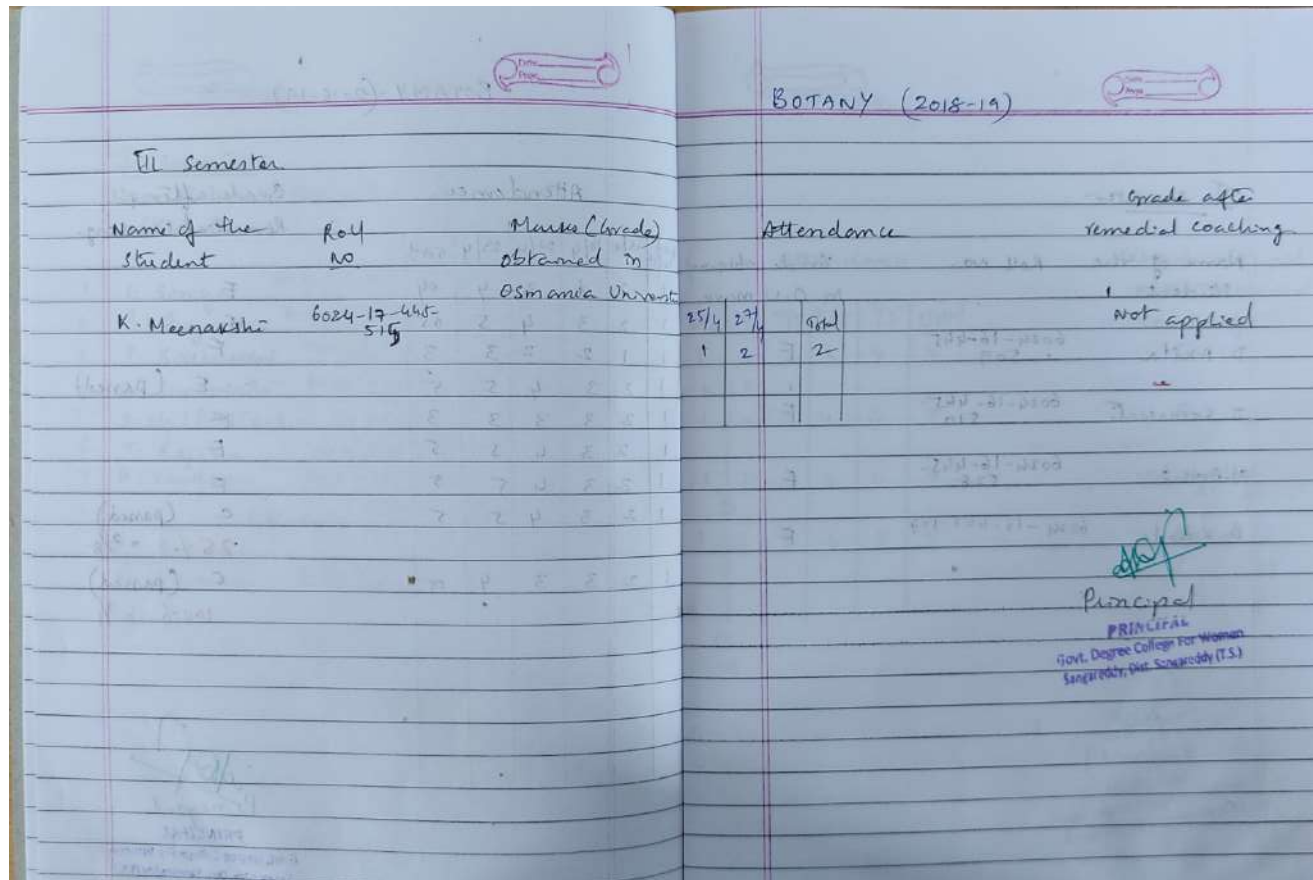 1
BOTANY (2018-19)
III Semester
Name of the student
Roll No
Marks (Grade) obtained in Osmania Universit
Attendance
Grade after remedial coaching
K. Meenakshi
6024-17-445-
25/4 27/4 Total
1 2 2
Not applied
Principal
PRINCIPAL
Govt. Degree College For Women
Sangareddy, Dist. Sangareddy (T.S.)